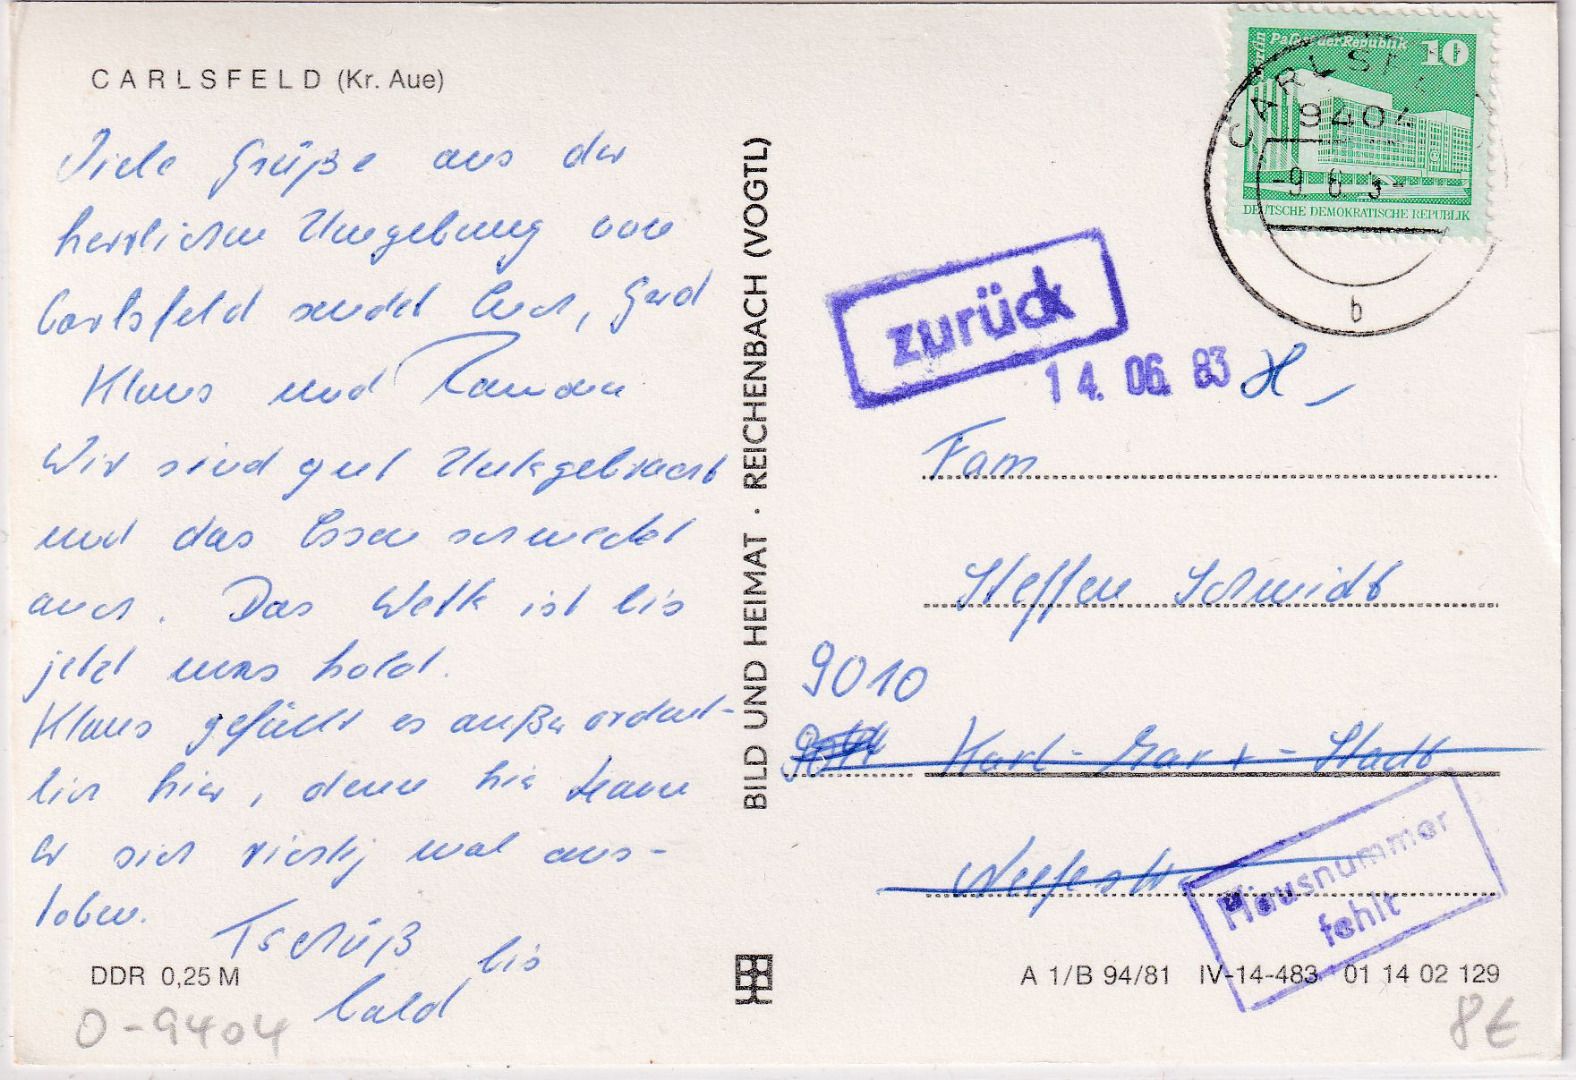 CARLSFELD (Kr. Aue)
Viele Grüße aus der
herrlichen Umgebung von
Carlsfeld sendet Euch, Gerd
Klaus und
Wir sind gut Untergebracht
und das Essen schmeckt
auch. Das Wetter ist bis
jetzt uns hold.
Klaus gefällt es außerordent-
lich hier, denn hier kann
er sich richtig mal aus-
toben.
Tschüß bis
bald
DDR 0,25 M
O-9404
BILD UND HEIMAT · REICHENBACH (VOGTL)
Berlin Palast der Republik 10
DEUTSCHE DEMOKRATISCHE REPUBLIK
CARLSFELD
9404
-9. 6. 3-
b
zurück
14. 06. 83
Fam
Steffen Schmidt
9010
Karl-Marx-Stadt
Hausnummer
fehlt
A 1/B 94/81 IV-14-483 01 14 02 129
8€